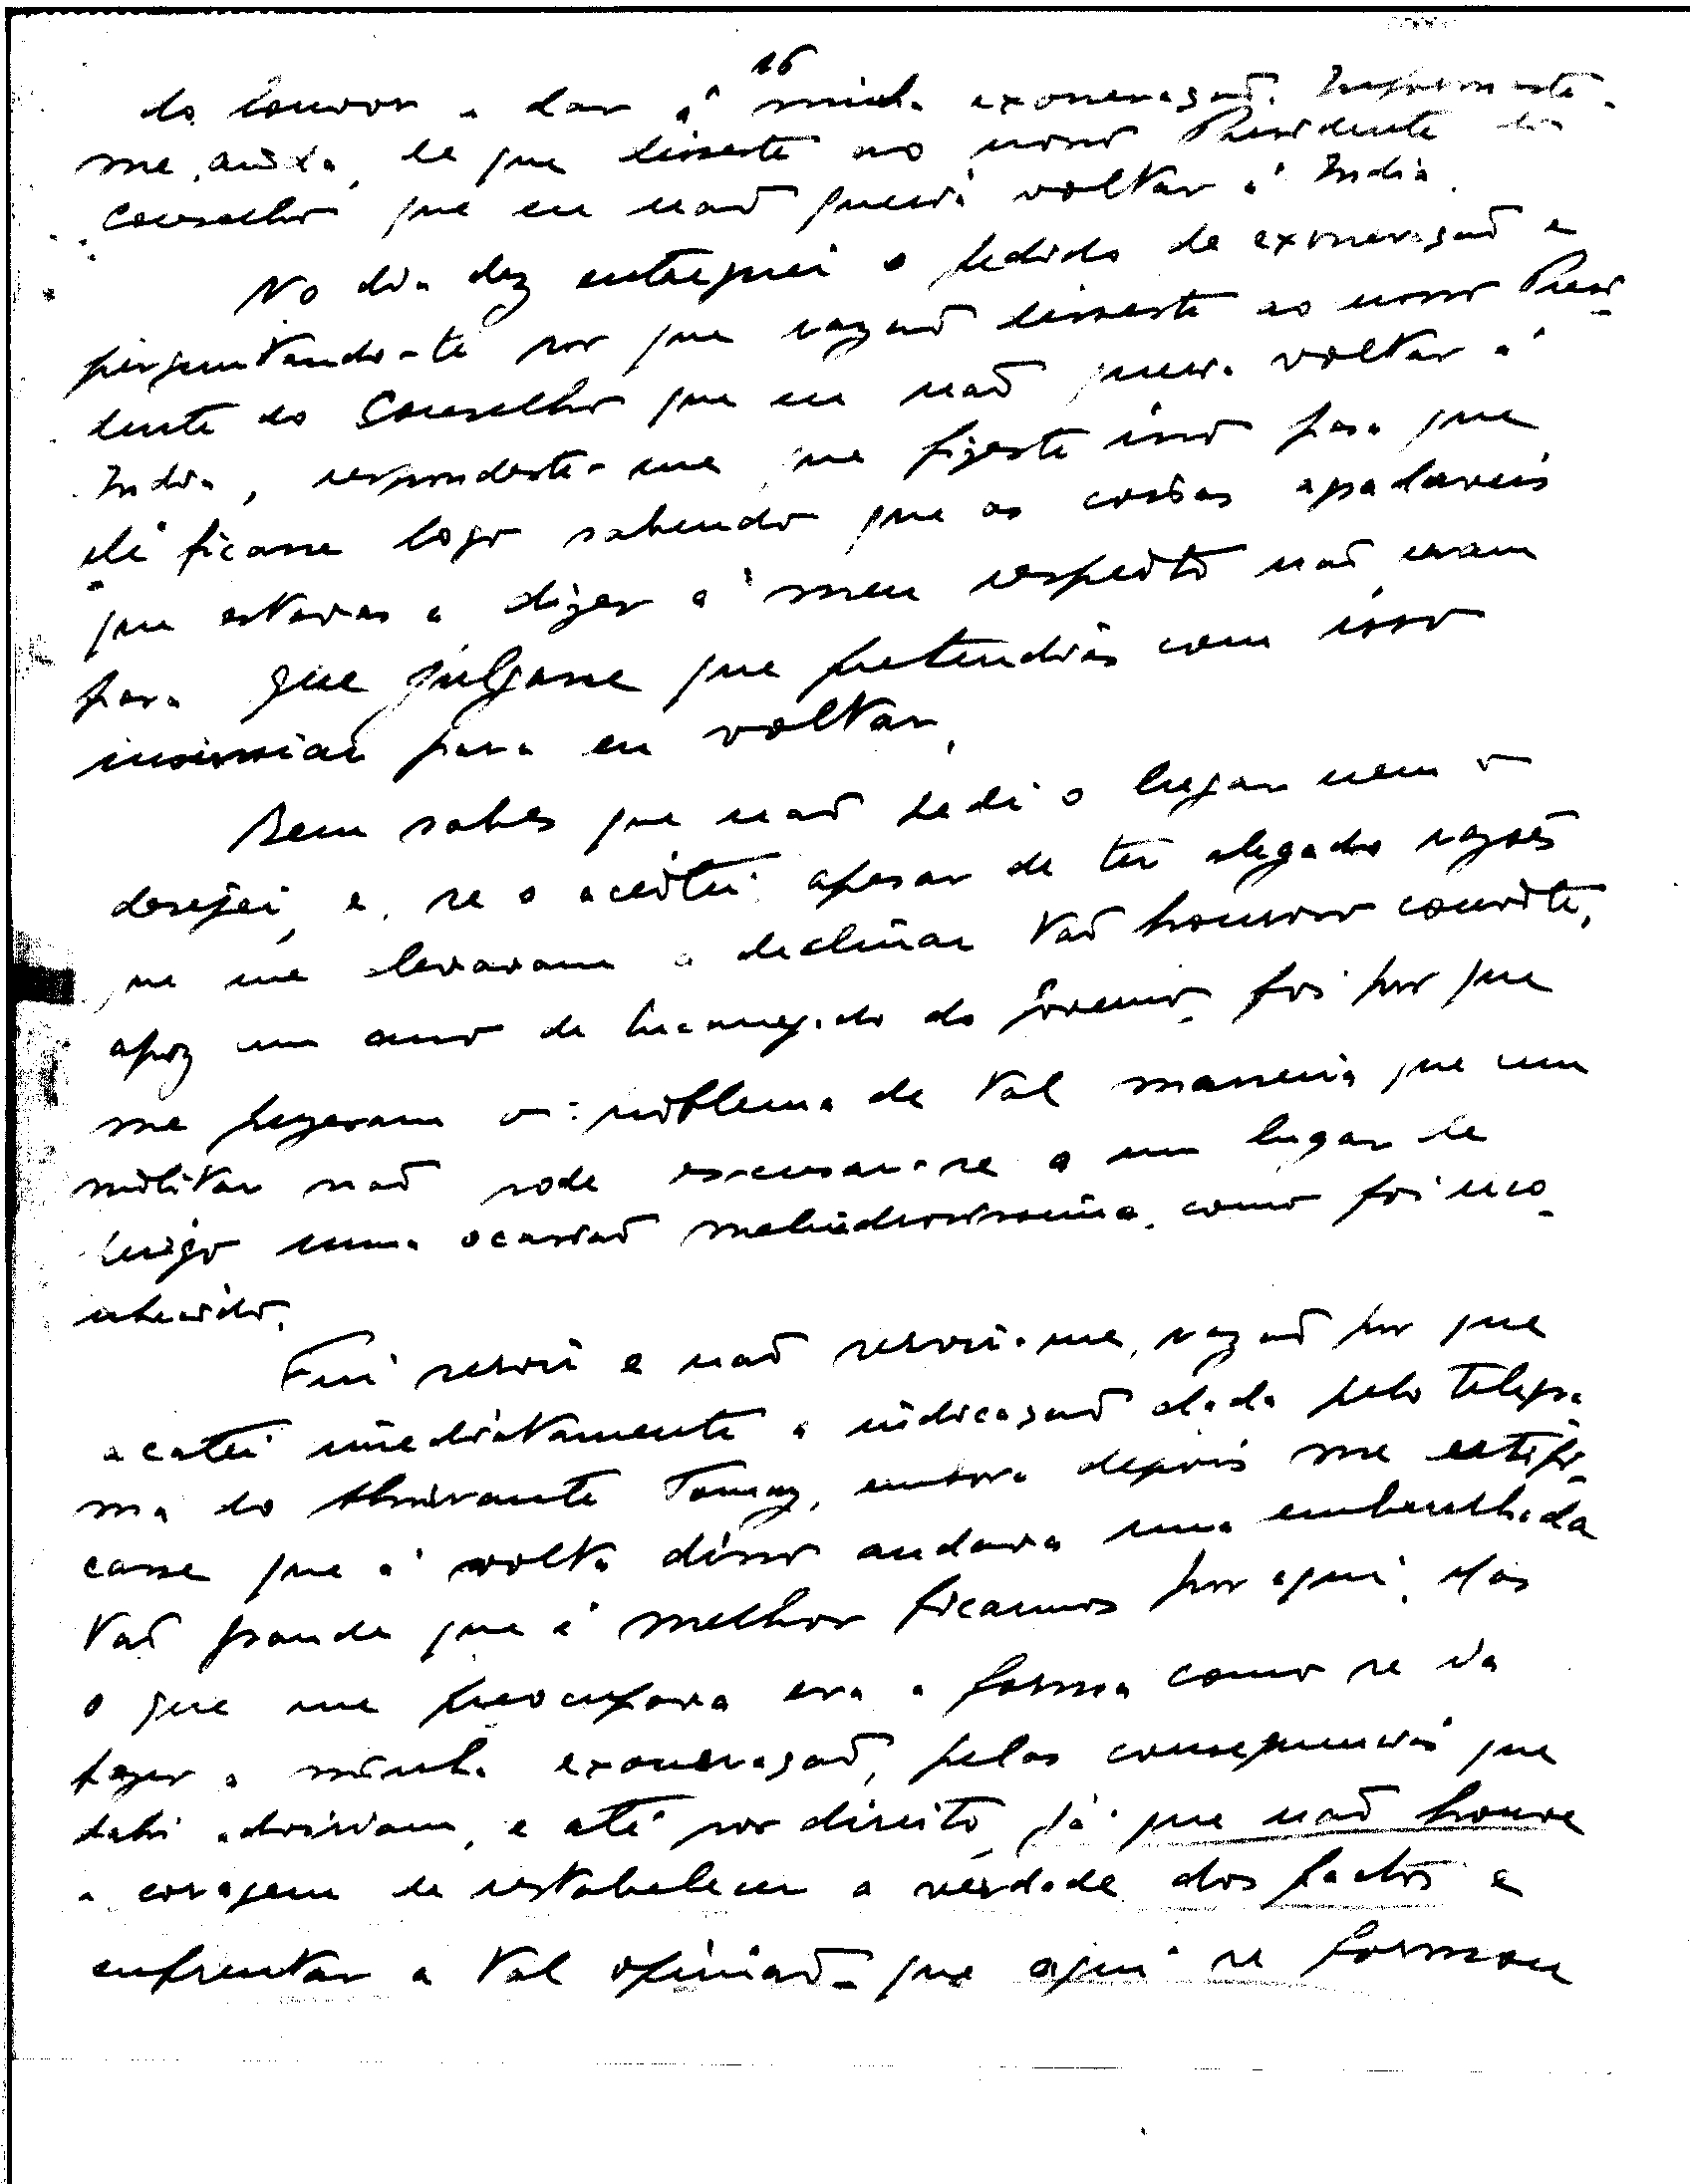 16
do louvor a dar á minha exoneração. Informaste-
me, ainda, de que disseste ao novo Presidente do
Conselho que eu não queria voltar á India.
No dia dez entreguei o pedido de exoneração e
perguntando-te por que razão disseste ao novo Presi-
dente do Conselho que eu não queria voltar á
India, respondeste-me que fizeste isso para que
ele ficasse logo sabendo que as coisas agradaveis
que estavas a dizer a meu respeito não eram
para que julgasse que pretendias com isso
insinuar para eu voltar.
Bem sabes que não pedi o lugar nem o
desejei, e, se o aceitei apesar de ter alegado razões
que me levavam a declinar tão honroso convite,
apoz um ano de Encarregado do Governo, foi por que
me pozeram o problema de tal maneira que um
militar não pode escusar-se a um lugar de
perigo numa ocasião melindrosissima, como foi reco-
nhecido.
Fui servir e não servir-me, razão por que
acatei imediatamente a indicação dada pelo telegra-
ma do Almirante Tomaz, embora depois me
que á volta disso andava uma embrulhada
tão grande que é melhor ficarmos por aqui. Mas
o que me preocupava era a forma como se ia
fazer a minha exoneração, pelas consequencias que
dahi adviriam, e até por direito, já que não houve
a coragem de restabelecer a verdade dos factos e
enfrentar a tal opinião que aqui se formou